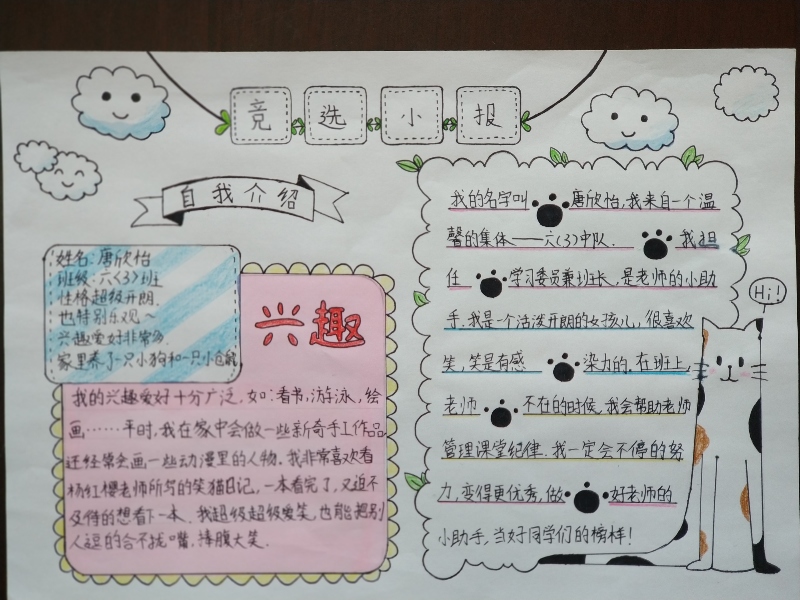 竞选小报
自我介绍
姓名:唐欣怡
班级:六〈3〉班
性格超级开朗.
也特别乐观~
兴趣爱好非常多
家里养了一只小狗和一只小仓鼠
兴趣
我的兴趣爱好十分广泛,如:看书,游泳,绘
画……平时,我在家中会做一些新奇手工作品
还经常会画一些动漫里的人物.我非常喜欢看
杨红樱老师所写的笑猫日记,一本看完了,又迫不
及待的想看下一本.我超级超级爱笑,也能把别
人逗的合不拢嘴,捧腹大笑.
我的名字叫 唐欣怡,我来自一个温
馨的集体——六〈3〉中队. 我担
任 学习委员兼班长,是老师的小助
手.我是一个活泼开朗的女孩儿,很喜欢
笑,笑是有感 染力的.在班上,
老师 不在的时候,我会帮助老师
管理课堂纪律.我一定会不停的努
力,变得更优秀,做 好老师的
小助手,当好同学们的榜样!
Hi!